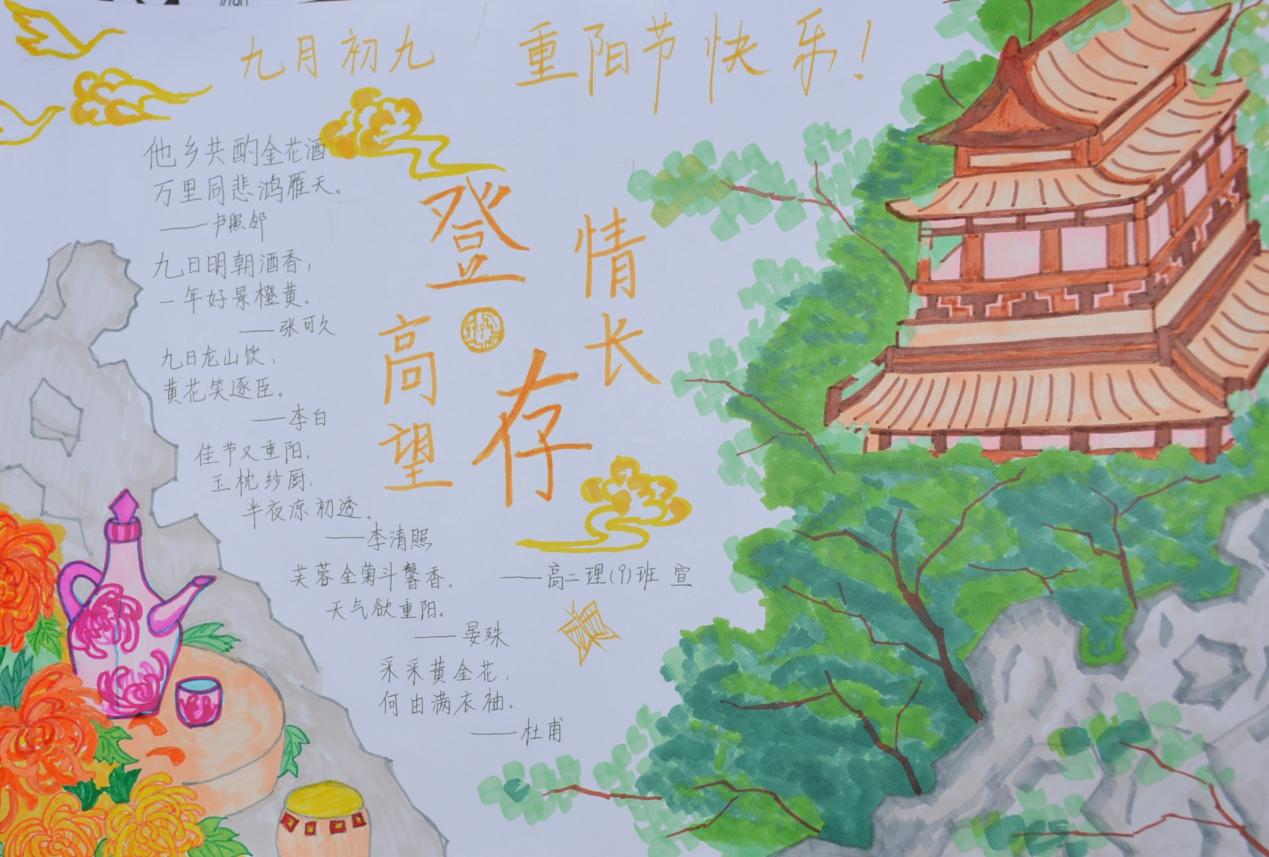 九月初九 重阳节快乐!
他乡共酌金花酒
万里同悲鸿雁天。
——卢照邻
九日明朝酒香,
一年好景橙黄。
——张可久
九日龙山饮,
黄花笑逐臣。
——李白
佳节又重阳,
玉枕纱厨,
半夜凉初透。
——李清照
芙蓉金菊斗馨香。
天气欲重阳。
——晏殊
采采黄金花,
何由满衣袖。
——杜甫
登高望
情长存
——高二理(9)班 宣